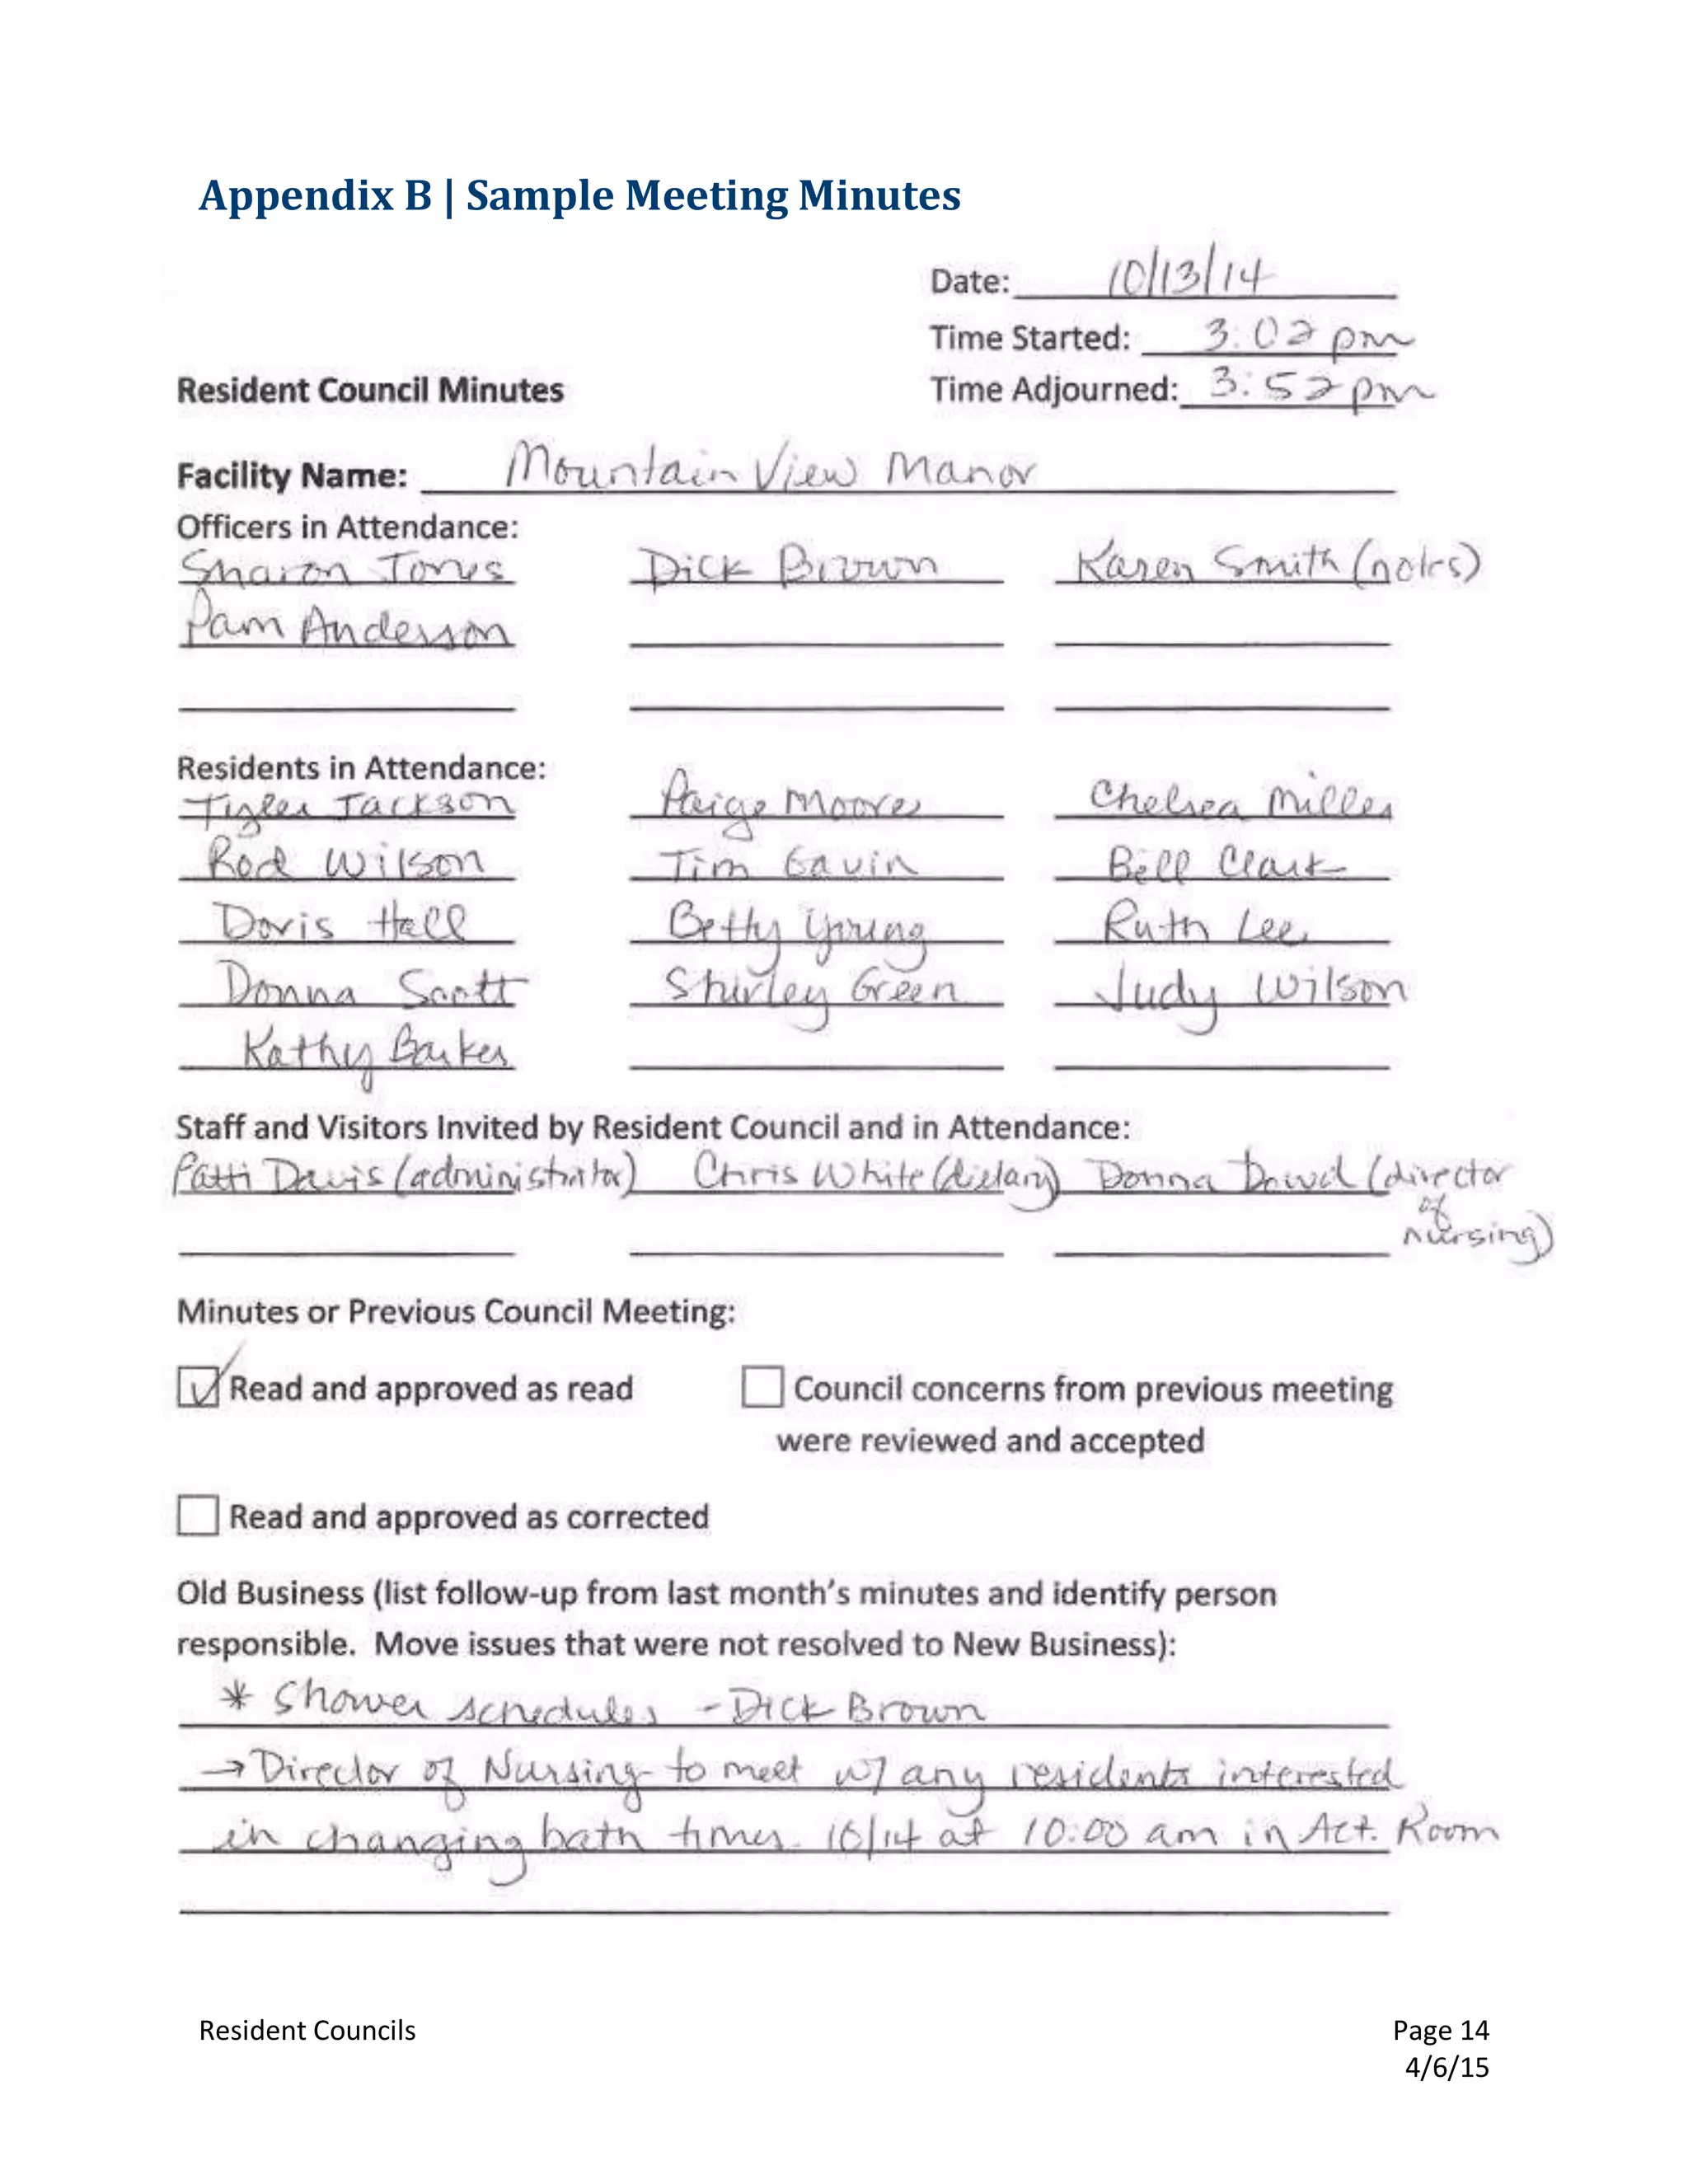 Appendix B | Sample Meeting Minutes
Date: 10/13/14
Time Started: 3:02 pm
Resident Council Minutes Time Adjourned: 3:52 pm
Facility Name: Mountain View Manor
Officers in Attendance:
Sharon Jones Dick Brown Karen Smith (notes)
Pam Anderson
Residents in Attendance:
Tyler Jackson Paige Moore Chelsea Miller
Rod Wilson Tim Gavin Bill Clark
Doris Hall Betty Young Ruth Lee
Donna Scott Shirley Green Judy Wilson
Kathy Barker
Staff and Visitors Invited by Resident Council and in Attendance:
Patti Davis (administrator) Chris White (dietary) Donna Dowd (director
of
nursing)
Minutes or Previous Council Meeting:
Read and approved as read Council concerns from previous meeting
were reviewed and accepted
Read and approved as corrected
Old Business (list follow-up from last month's minutes and identify person
responsible. Move issues that were not resolved to New Business):
* Shower schedules - Dick Brown
→ Director of Nursing to meet w/ any residents interested
in changing bath times. 10/14 at 10:00 am in Act. Room
Resident Councils Page 14
4/6/15